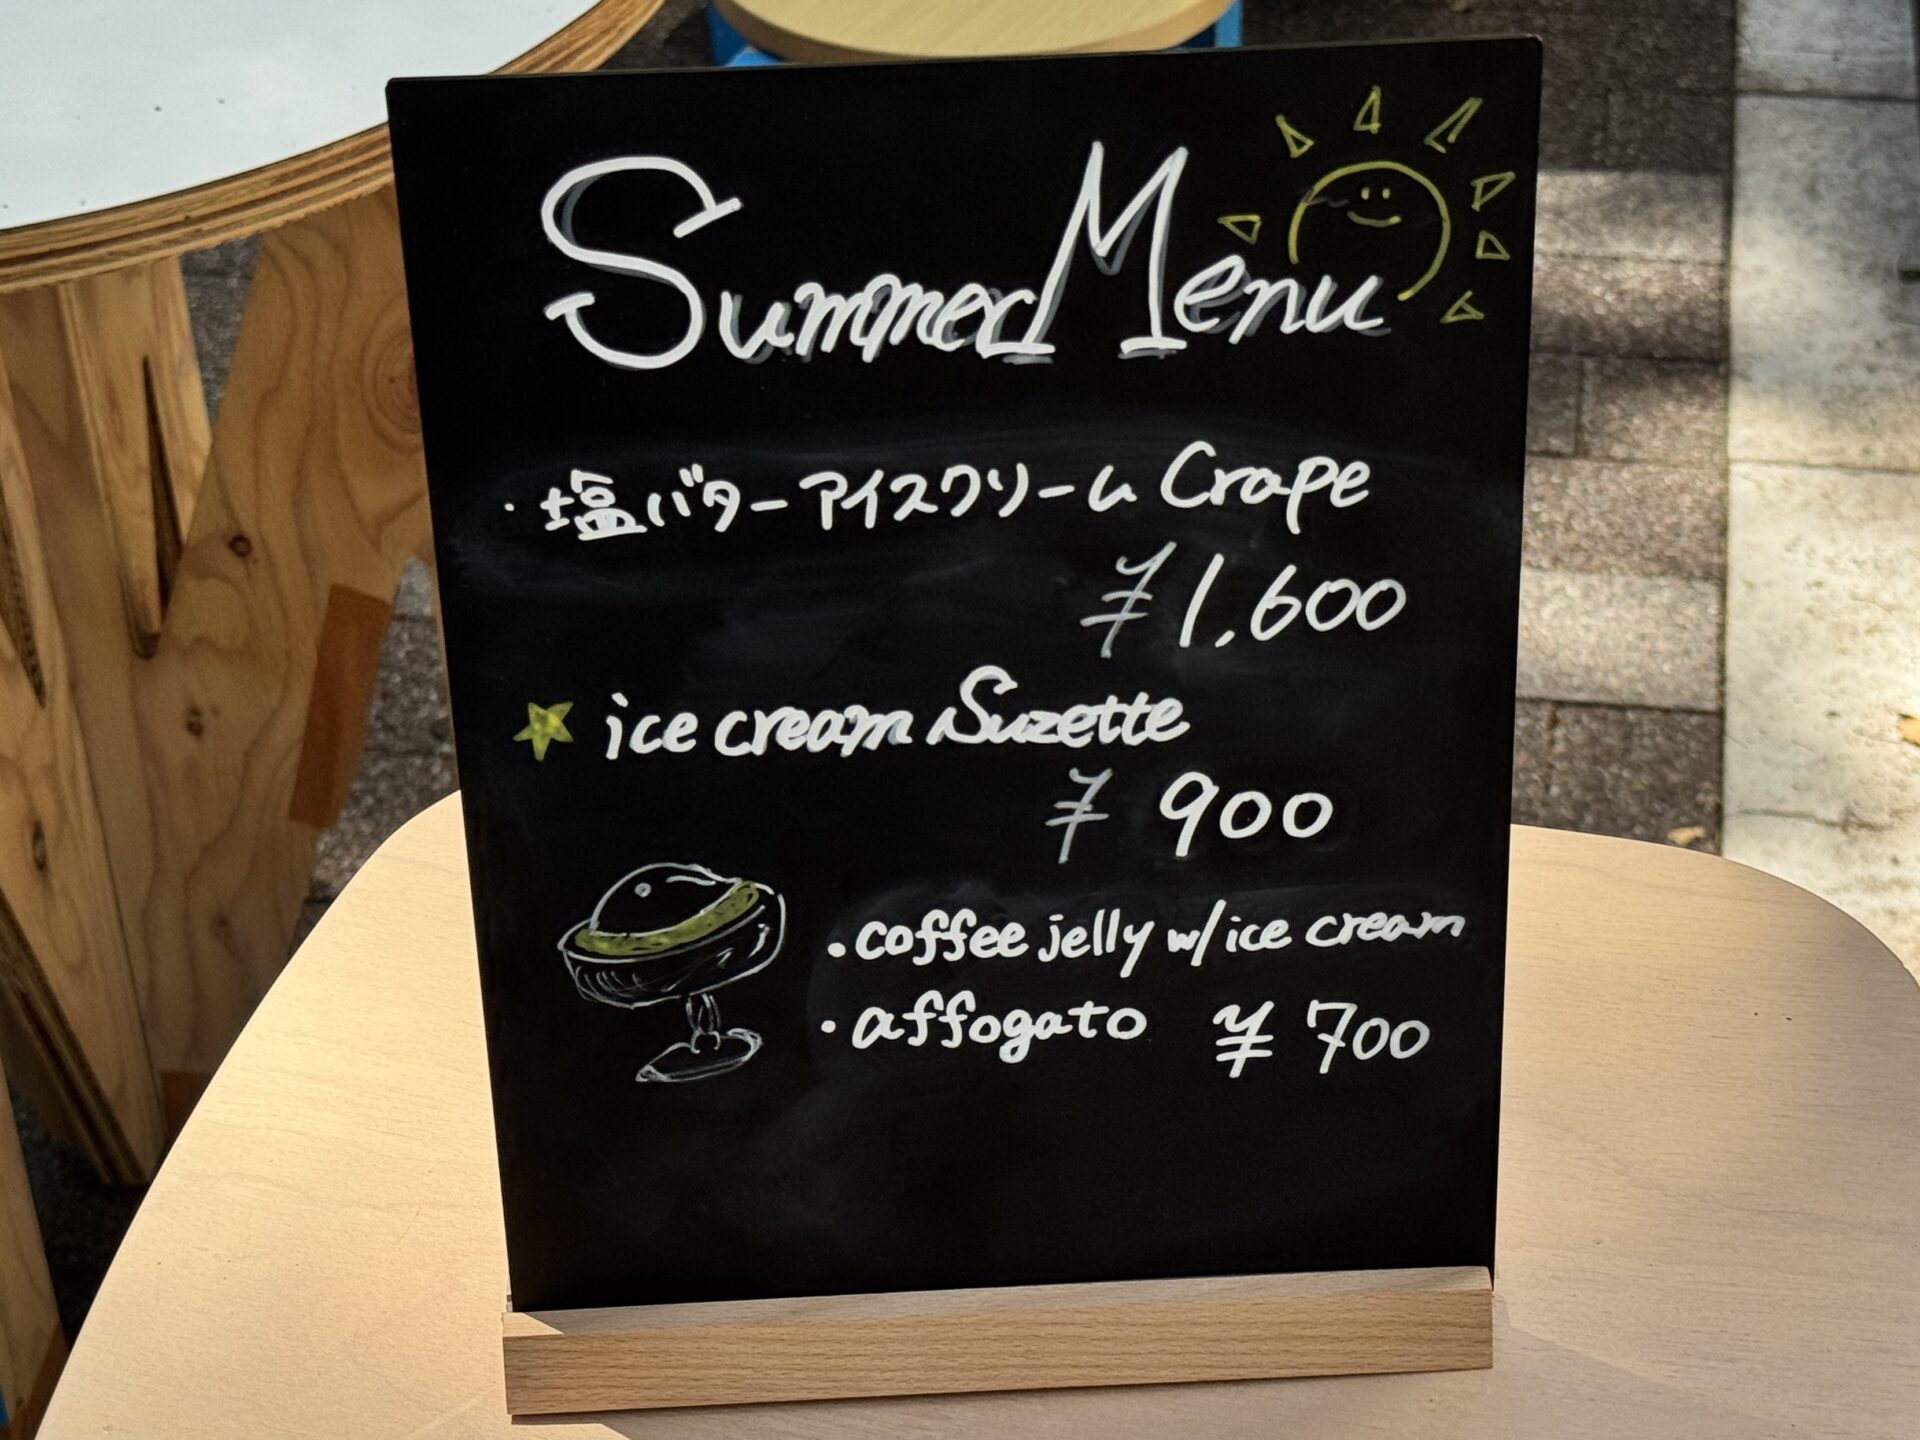 Summer Menu
・塩バターアイスクリーム Crape
¥1,600
★ ice cream Suzette
¥ 900
・coffee jelly w/ ice cream
・affogato ¥ 700